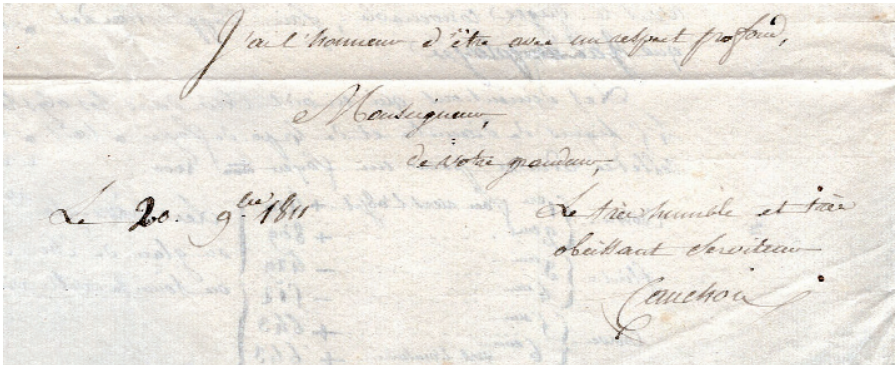 J'ai l'honneur d'être avec un respect profond,
Monseigneur,
de votre grandeur,
Le 20. 9.bre 1811
Le très humble et très
obéissant Serviteur
Cauchoix